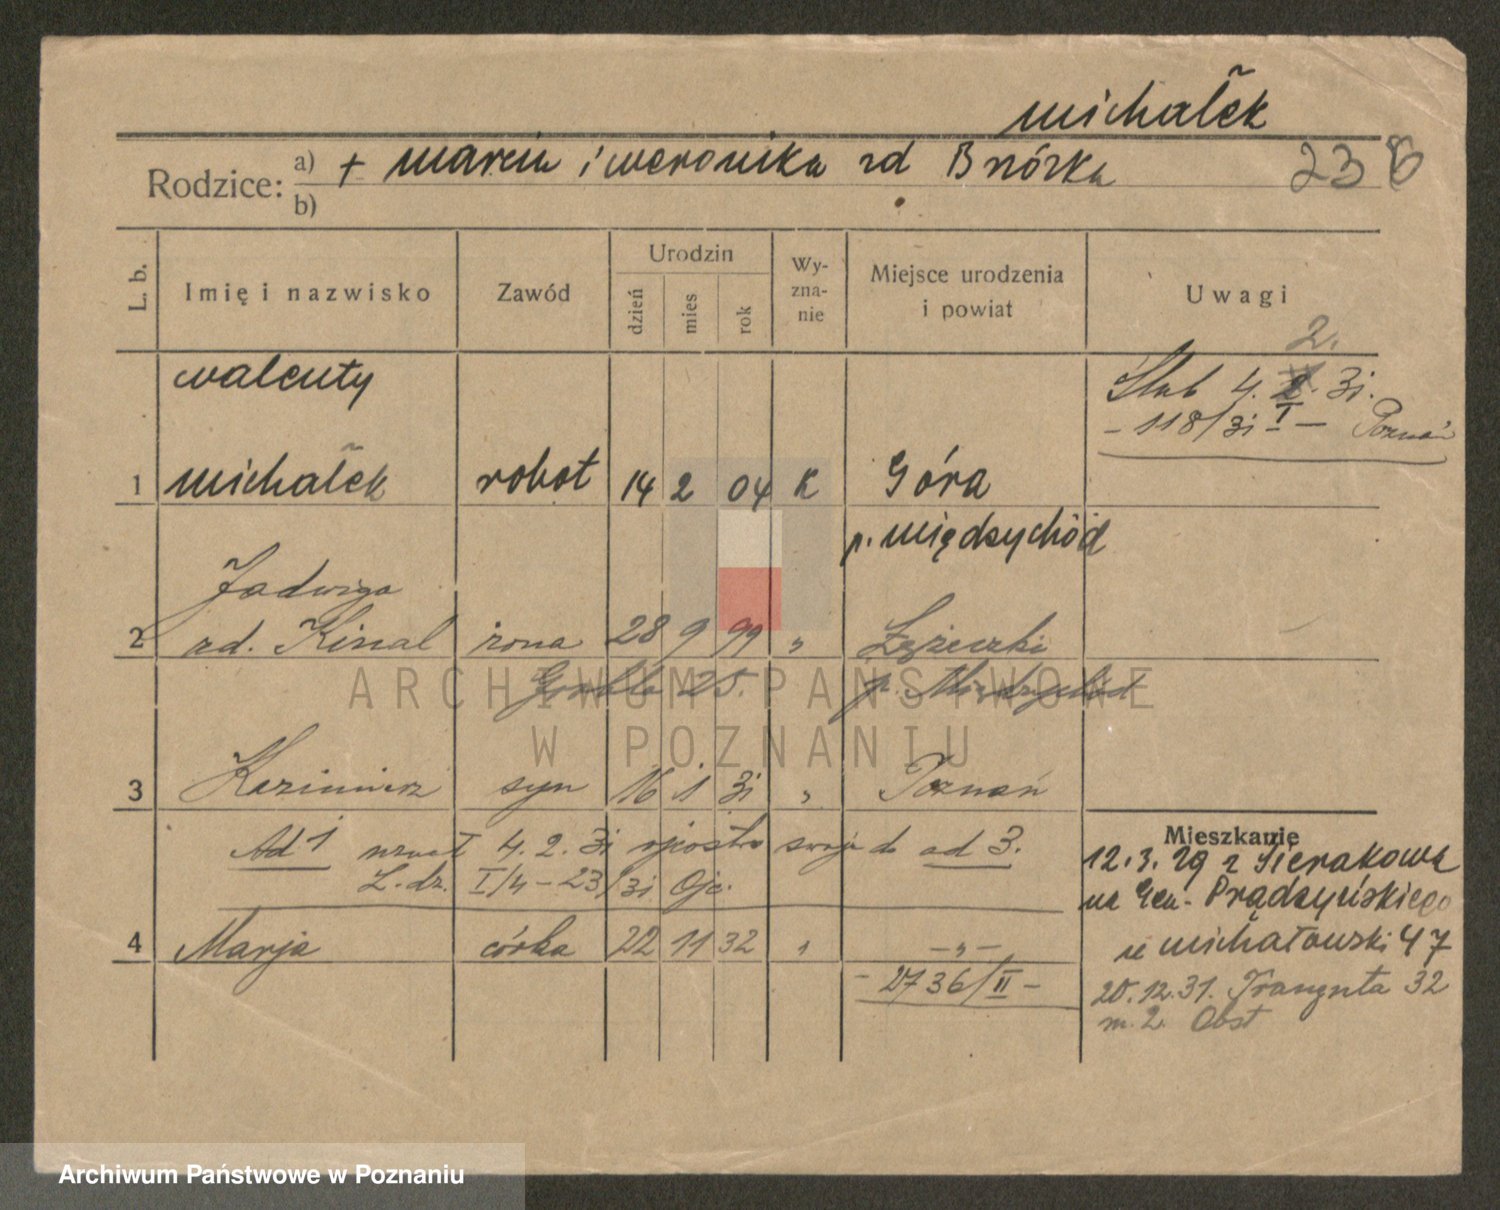 michałek
Rodzice: a) + marcin i weronika zd Bzózka 23
b)
L. b. Imię i nazwisko Zawód Urodzin dzień mies rok Wy-zna-nie Miejsce urodzenia i powiat Uwagi
2.
walenty Ślub 4. 2. 31.
- 118/31 I - Poznań
1 michałek robot 14 2 04 K Góra
p. międzychód
Jadwiga
2 zd. Kinal żona 28 9 99 " Łężeczki
Grobla 25. p. Międzychód
3 Kazimierz syn 16 1 31 " Poznań
Ad 1 uznał 4. 2. 31 ojcostwo swoje do ad 3.
L. dz. I/4 - 23/31 Ojc.
4 Marja córka 22 11 32 " - " -
- 2736/II -
Mieszkanie
12.3.29 z Sierakowa
na Gen. Prądzyńskiego
michałowski 47
20.12.31. 32
m. 2. Obst
ARCHIWUM PAŃSTWOWE
W POZNANIU
Archiwum Państwowe w Poznaniu